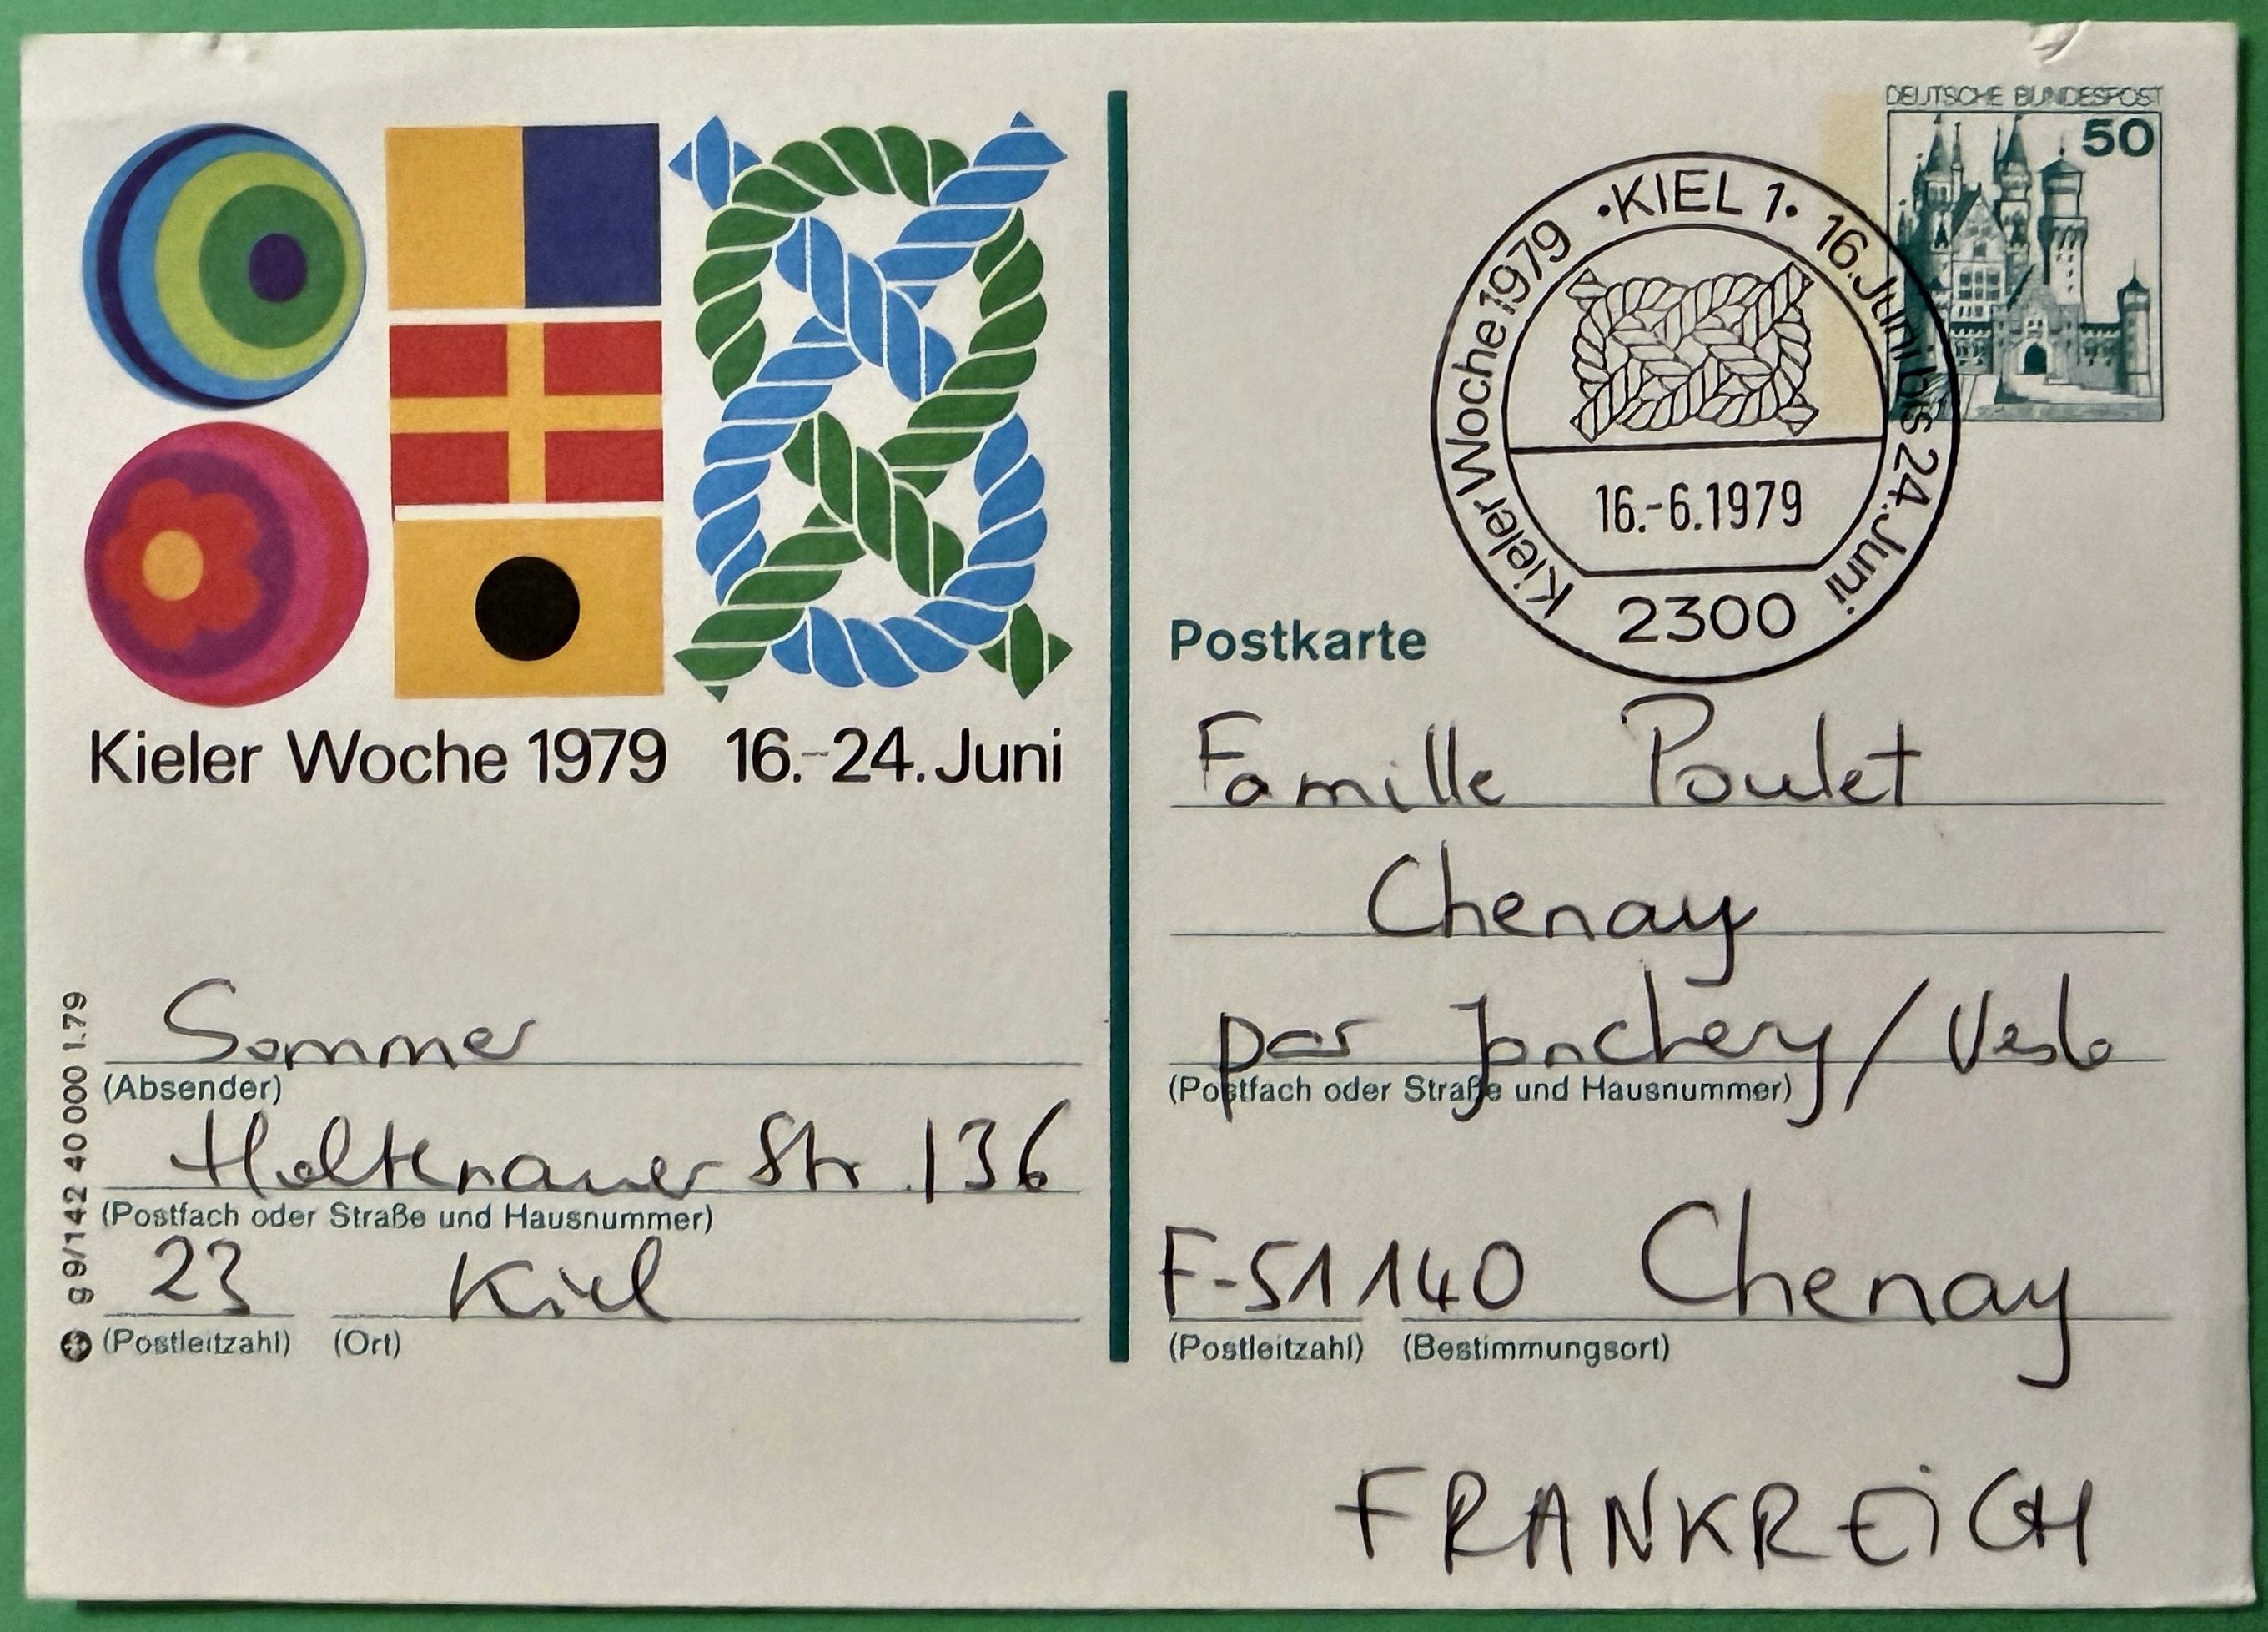 Kieler Woche 1979 16.–24. Juni
Sommer
(Absender)
Holtenauer Str. 136
(Postfach oder Straße und Hausnummer)
23 Kiel
(Postleitzahl) (Ort)
g 9/142 40 000 1.79
DEUTSCHE BUNDESPOST
50
Kieler Woche 1979 · KIEL 1 · 16. Juni bis 24. Juni
16.-6.1979
2300
Postkarte
Famille Poulet
Chenay
par Jonchery / Vesle
(Postfach oder Straße und Hausnummer)
F-51140 Chenay
(Postleitzahl) (Bestimmungsort)
FRANKREICH